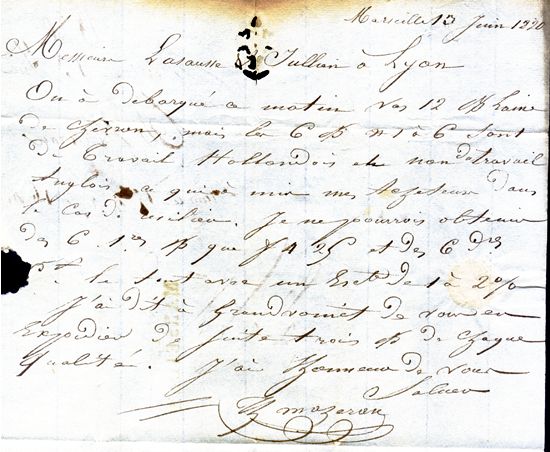 Marseille 13 Juin 1820
Messieurs Lasausse & Jullien à Lyon
On à debarqué ce matin vos 12 B laine
de chevron, mais les 6 B n 1 à 6 sont
de travail Hollandois et non de travail
Anglois ce qui à mis mes acheteurs dans
le cas de . Je ne pourrois obtenir
des 6 1res B que f 4 25 et des 6 dres
le tout avec un Escte de 1 à 2 %
J'ai dit à Grandvoinet de vous en
Expedier de suite trois B de chaque
qualité. J'ai l'honneur de vous
Saluer
mozeron